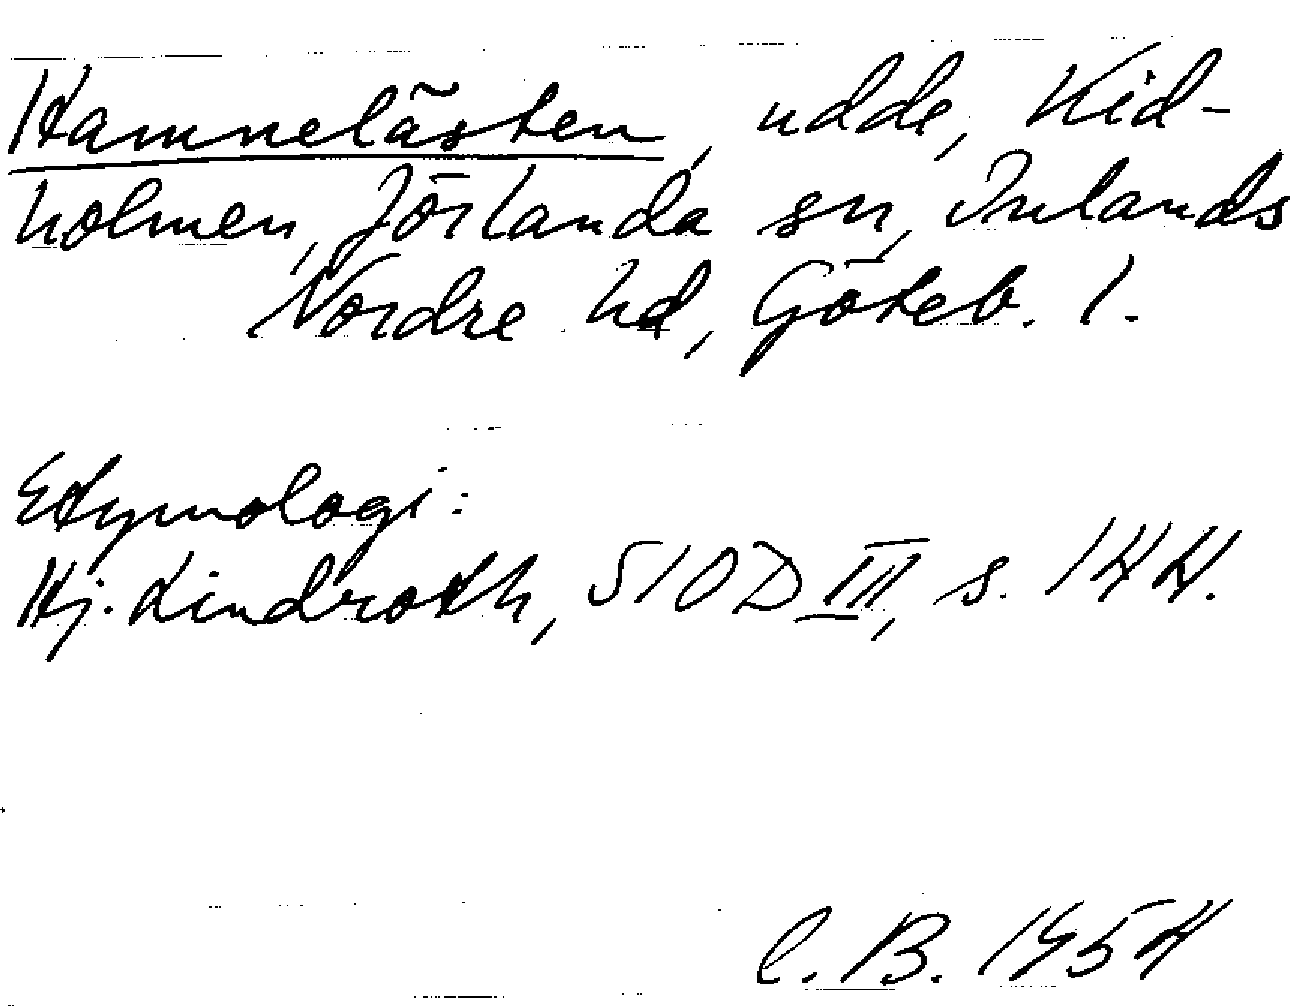 Hamnelästen, udde, Kid-
holmen, Jörlanda sn, Inlands
Nordre hd, Göteb. l.
Etymologi:
Hj. Lindroth, SIOD III, s. 144.
C. B. 1954